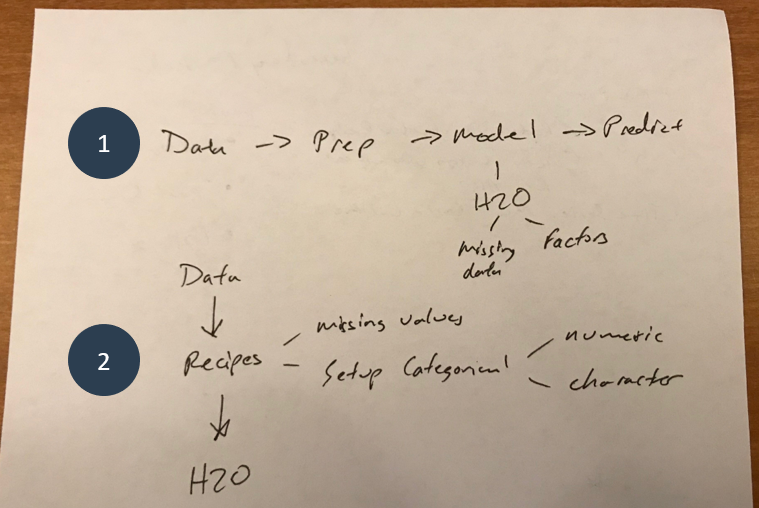 1 Data -> Prep -> Model -> Predict
H2O
missing data
Factors
Data
2 Recipes
missing values
Setup Categorical
numeric
character
H2O